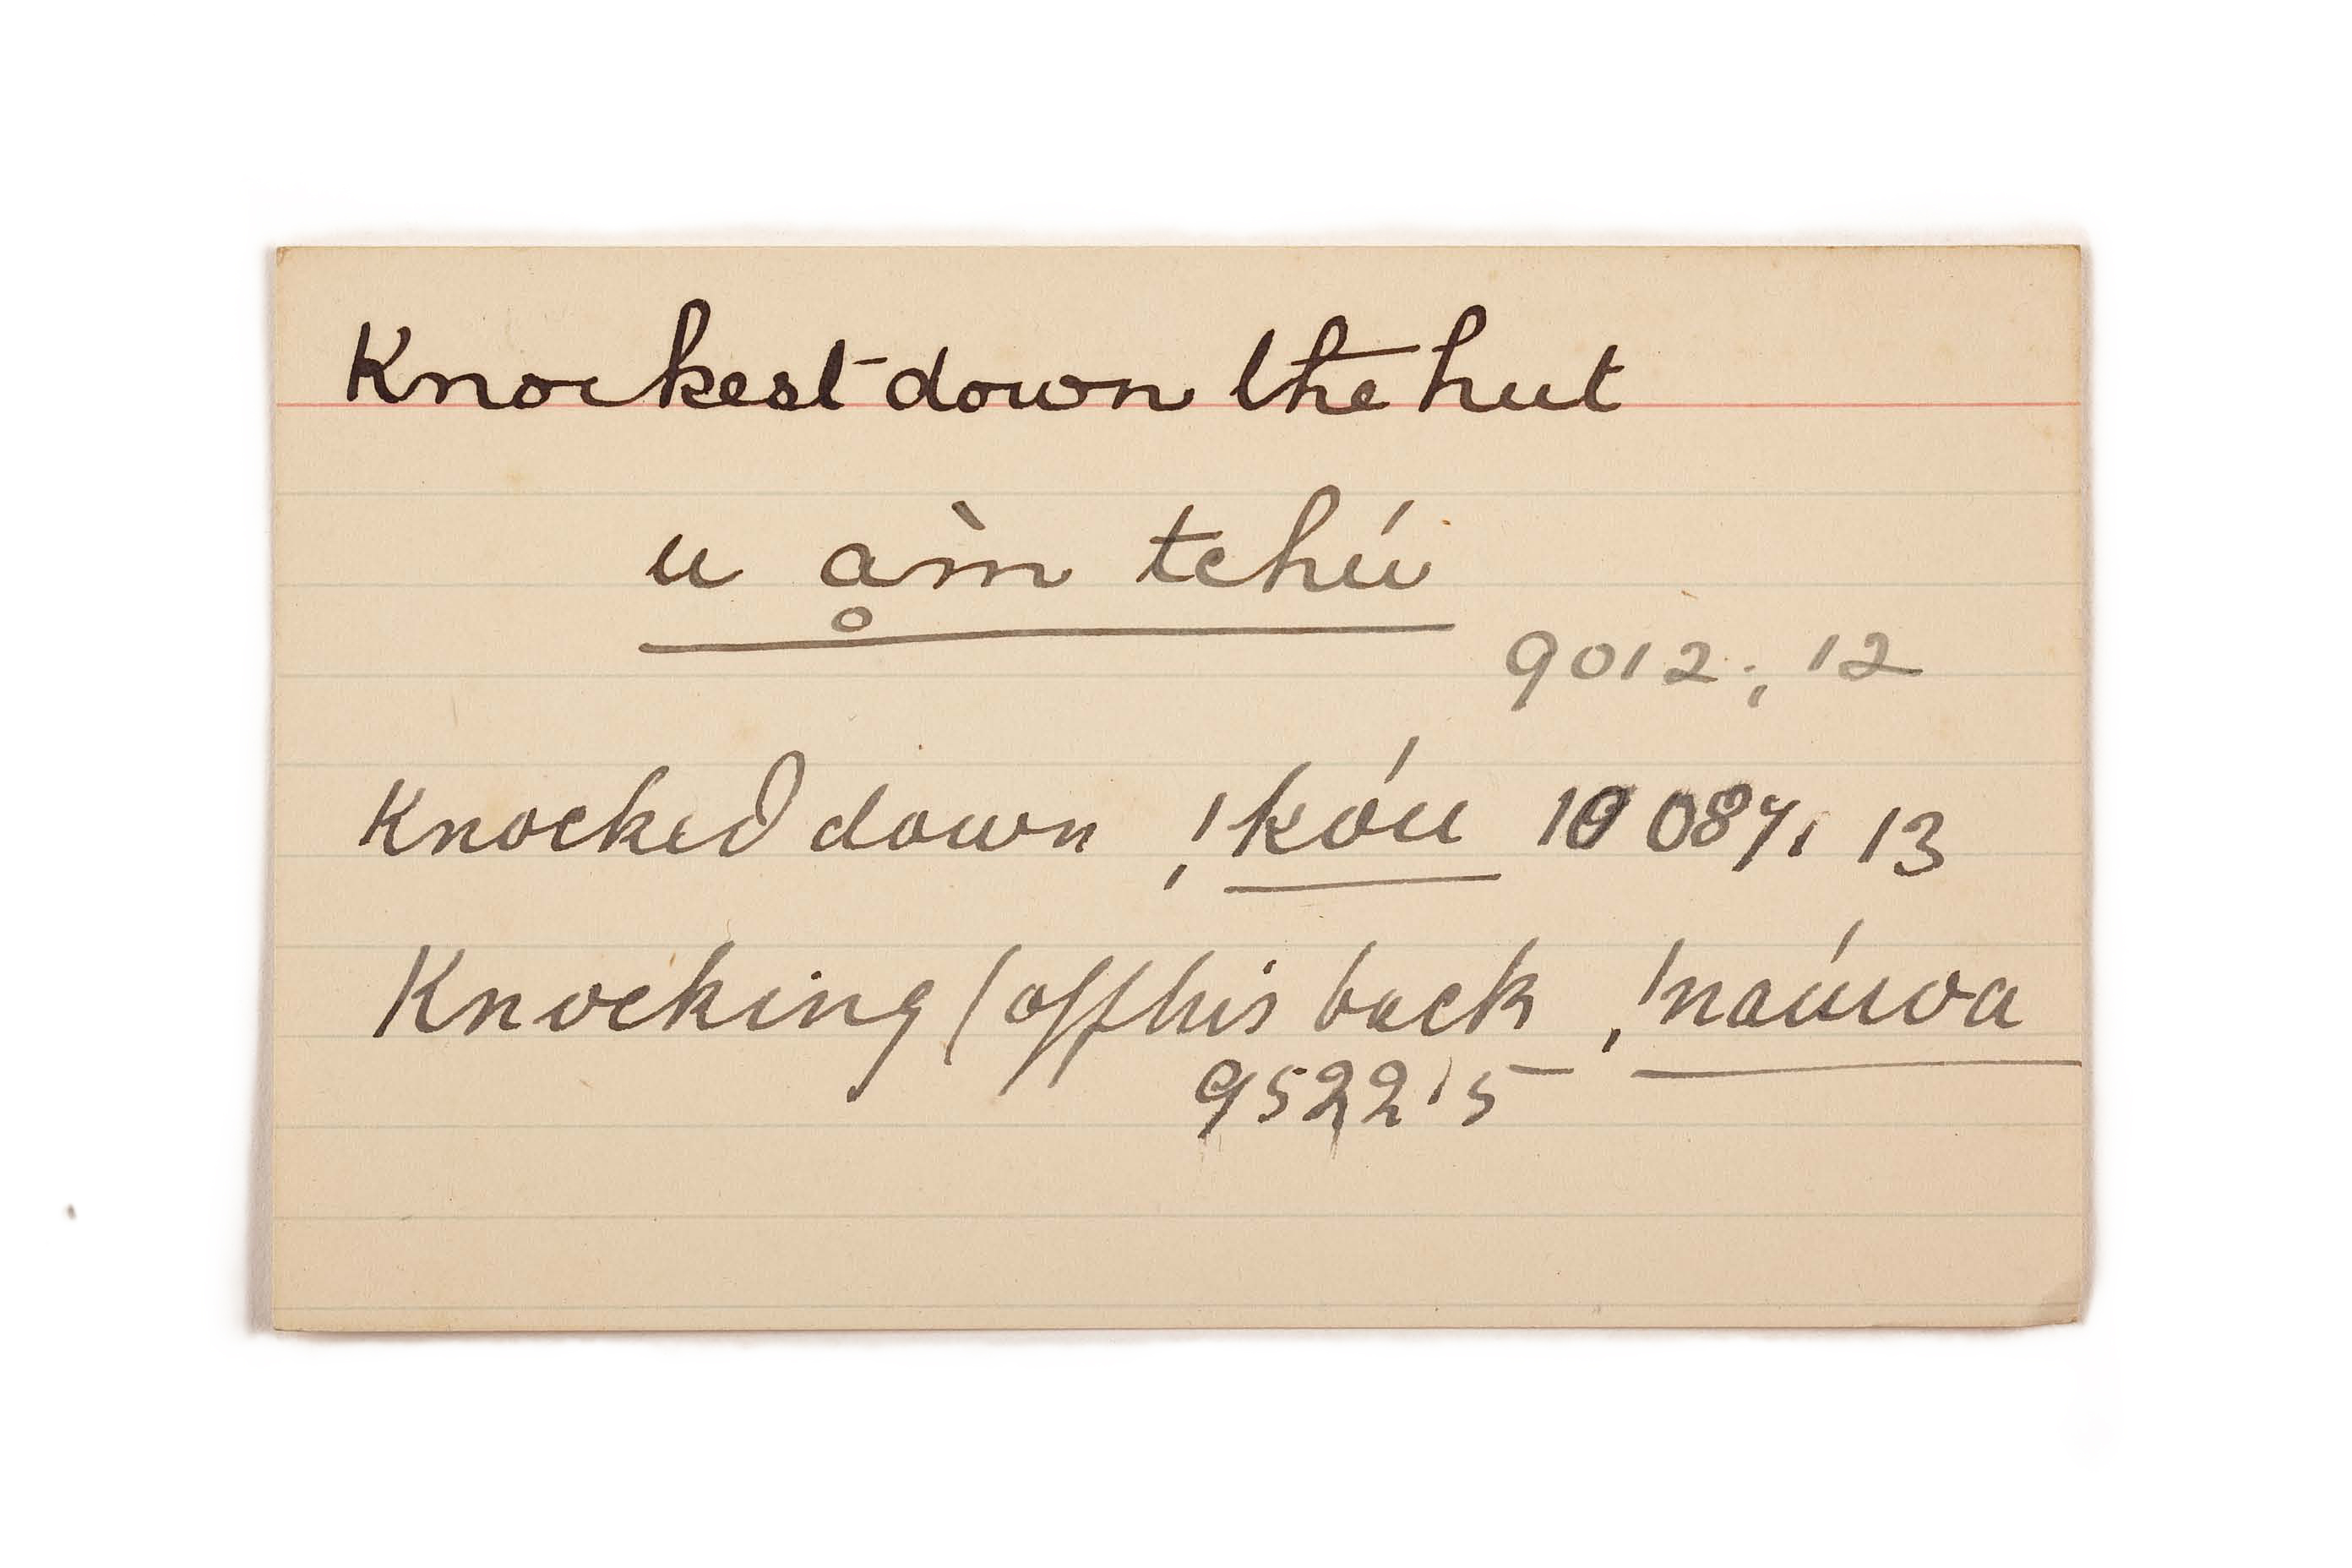 Knockest down the hut
u ḁm̀ tchúi
9012; 12
Knocked down !kóu 10 087, 13
Knocking (off his back !naúwa
9522, 5